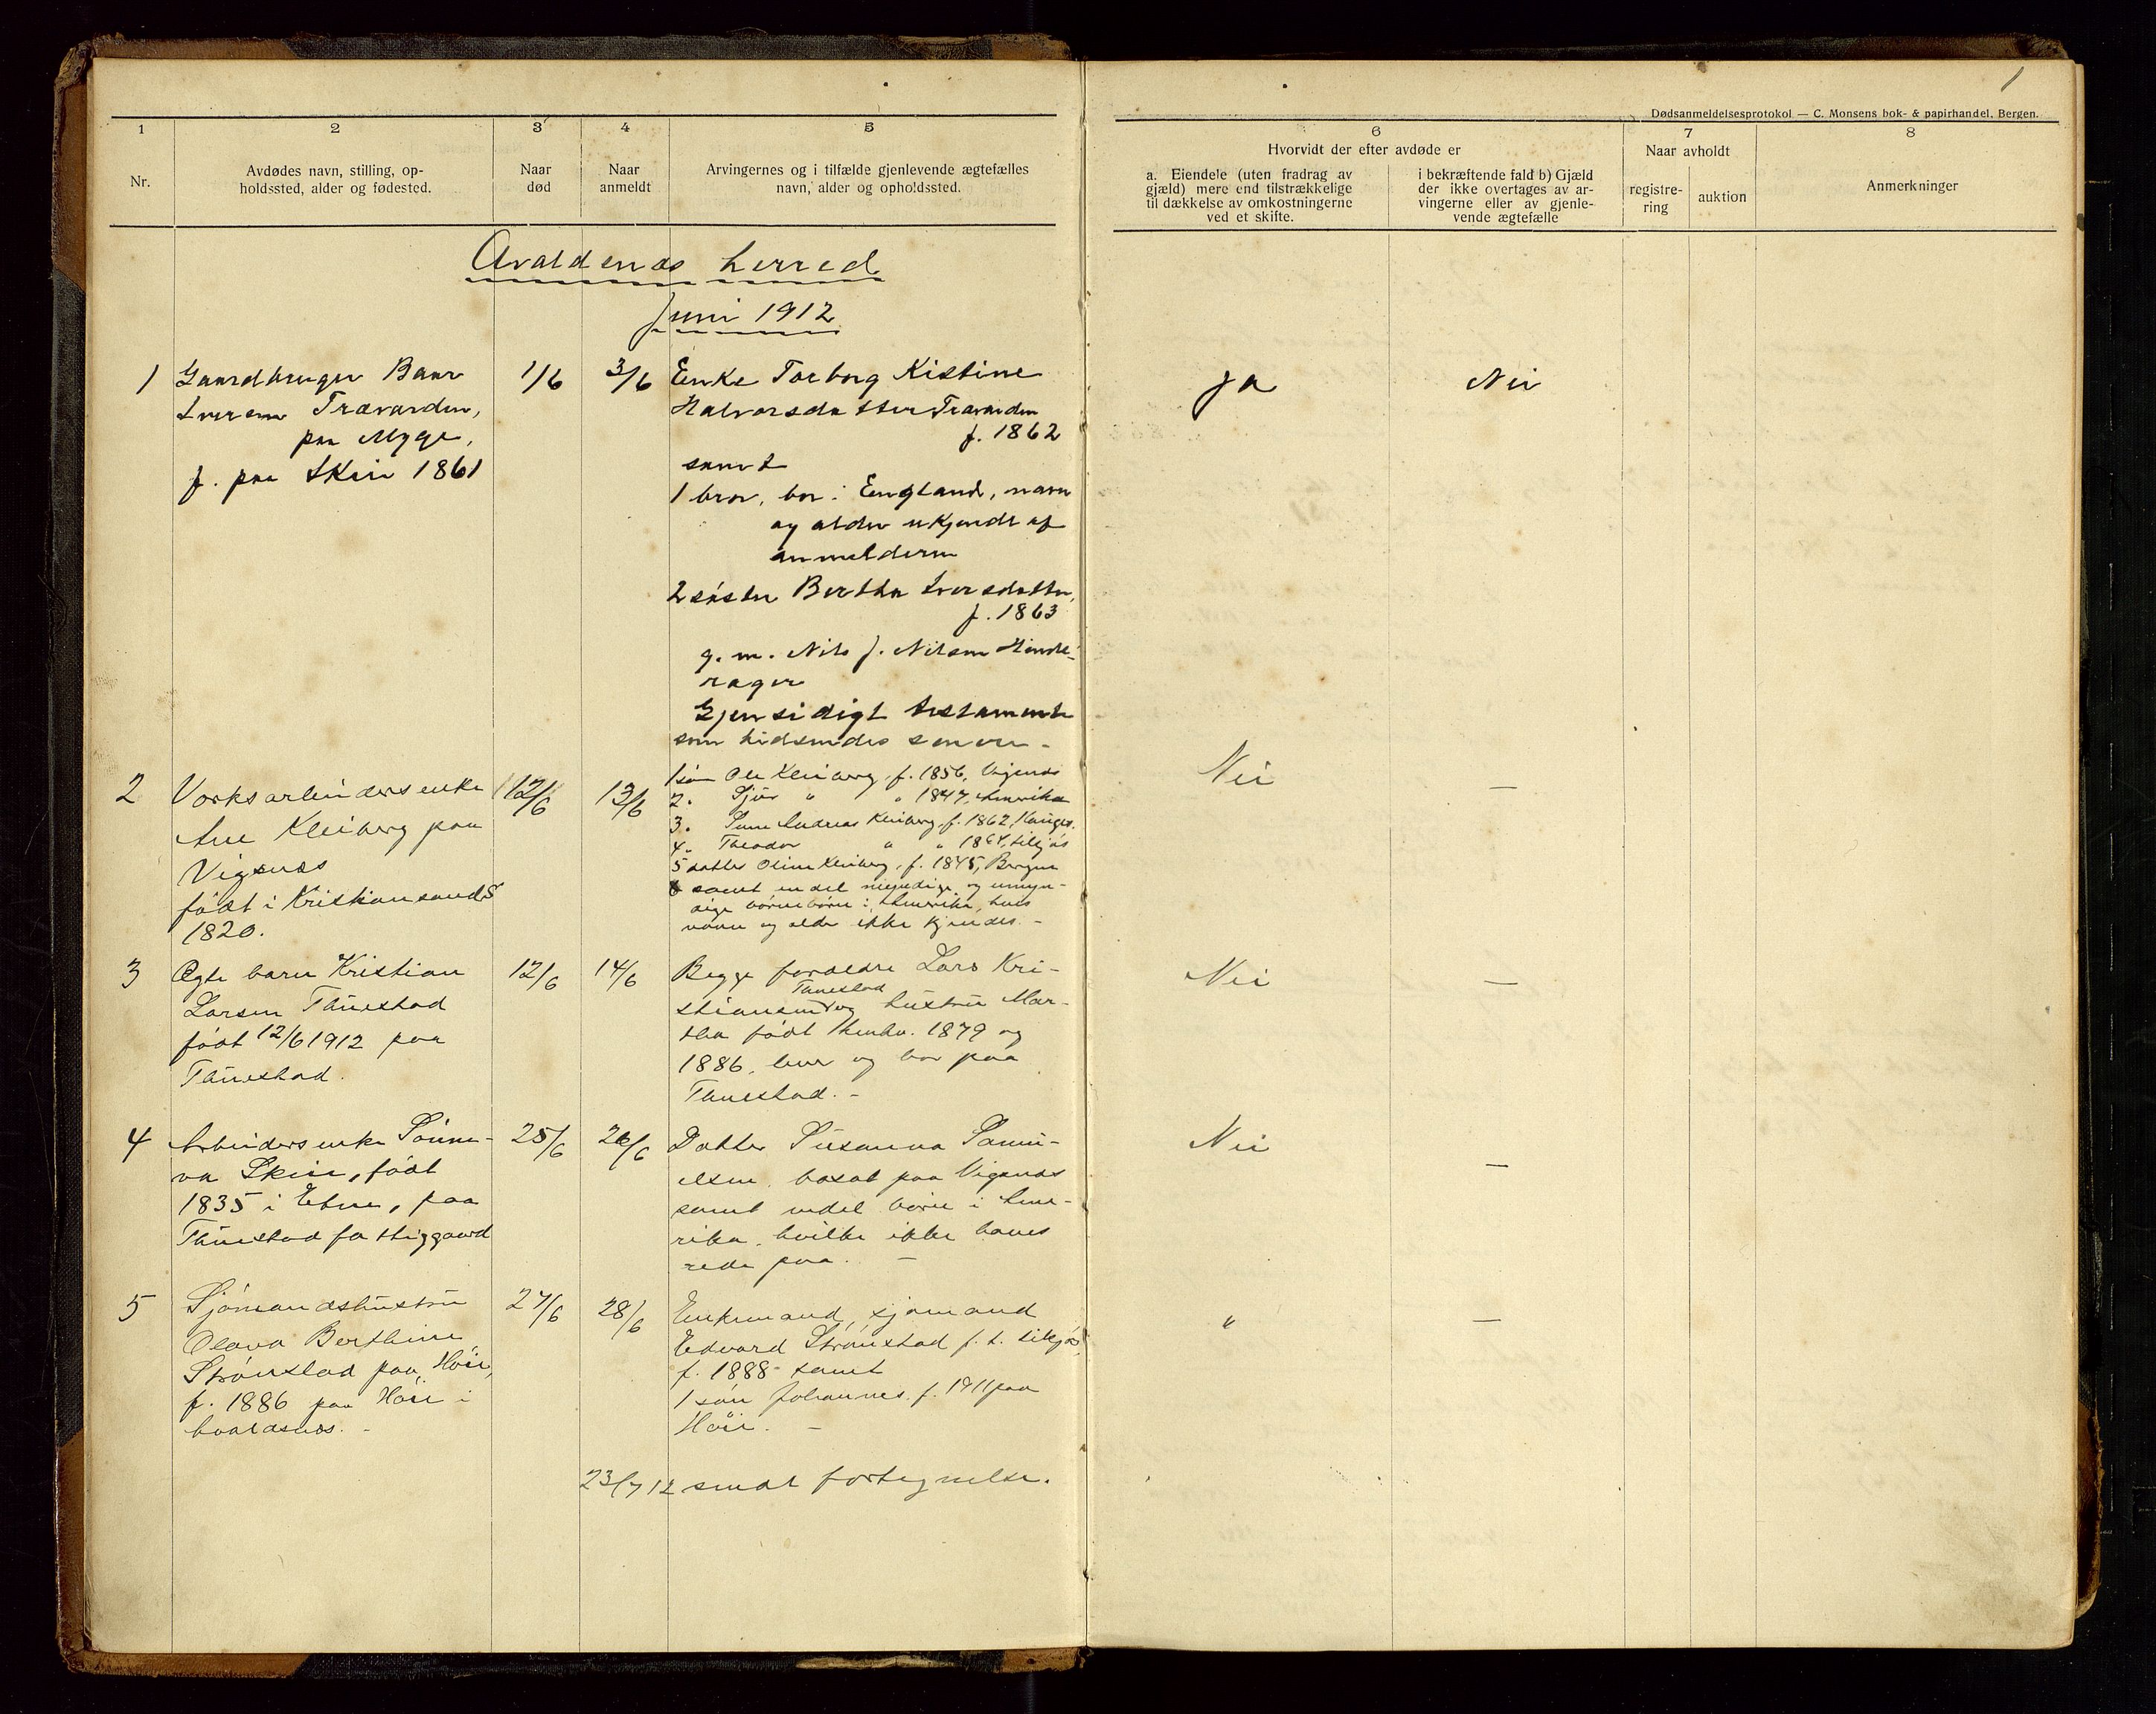 1
Dødsanmeldelsesprotokol — C. Monsens bok- & papirhandel, Bergen.
1 2 3 4 5 6 7 8
Nr.
Avdødes navn, stilling, op-
holdssted, alder og fødested.
Naar
død
Naar
anmeldt
Arvingernes og i tilfælde gjenlevende ægtefælles
navn, alder og opholdssted.
Hvorvidt der efter avdøde er
a. Eiendele (uten fradrag av
gjæld) mere end tilstrækkelige
til dækkelse av omkostningerne
ved et skifte.
i bekræftende fald b) Gjæld
der ikke overtages av ar-
vingerne eller av gjenle-
vende ægtefælle
Naar avholdt
registre-
ring
auktion
Anmerkninger
Avaldsnes herred
Juni 1912
1
Gaardbruger Baar
Iversen Trævarden,
paa Myge,
f. paa Skeie 1861
1/6
3/6
Enke Torborg Kistine
Halvorsdatter Trævarden
f. 1862
samt
1 bror, bor i England, navn
og alder ukjendt af
anmelderen
2 søster Bertha Iversdatter,
f. 1863
g. m. Nils J. Nilsen
Gjensidigt testamente
som hidsendes senere -
Ja
Nei
2
Verksarbeidersenke
Ane Kleiberg paa
Vigsnes
født i Kristiansands
1820.
12/6
13/6
1 søn Ole Kleiberg, f. 1856, Vigsnes
2. Sjur " " 1847, Amerika
3. Andreas Kleiberg, f. 1862,
4. Theodor " " 1864, tilsjøs
5 datter Oline Kleiberg, f. 1845, Bergen
6 samt endel myndige og umyn-
dige børnebørn i Amerika, hvis
navn og alder ikke kjendes. -
Nei
—
3
Ægte barn Kristian
Larsen Tuestad
født 12/6 1912 paa
Tuestad.
12/6
14/6
Begge forældre Lars Kri-
Tuestad
stiansen og hustru Mar-
tha født henhv. 1879 og
1886, bor paa
Tuestad. -
Nei
—
4
Arbeidersenke Sønne-
va Skeie, født
1835 i Etne, paa
Tuestad fattiggaard
25/6
26/6
Datter Susanna Samu-
elsen, bosat paa Vigsnes
samt endel børn i Ame-
rika, hvilke ikke haves
rede paa. —
Nei
—
5
Sjømandshustru
Olava Berthine
Strønstad paa Høie,
f. 1886 paa Høie i
Avaldsnes. -
27/6
28/6
Enkemand, sjømand
Edvard Strønstad f. t. tilsjøs,
f. 1888 samt
1 søn Johannes f. 1911 paa
Høie. —
"
—
23/7 12 sendt fortegnelse.